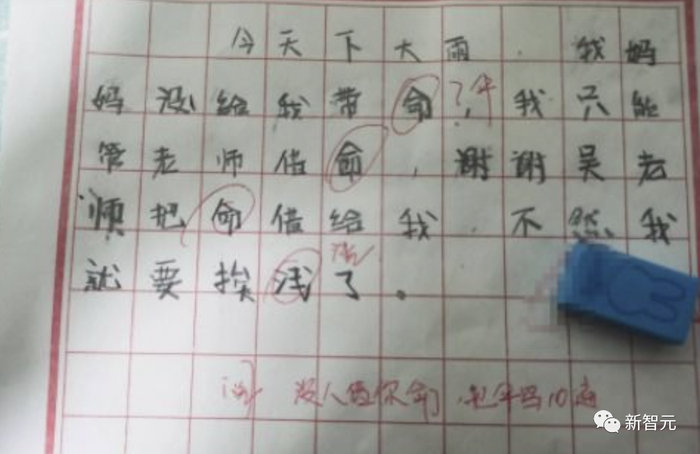 今天下大雨，我妈
妈没给我带命，我只能
管老师借命，谢谢吴老
师把命借给我，不然我
就要挨浅了。
没人借你命，把伞写10遍
新智元